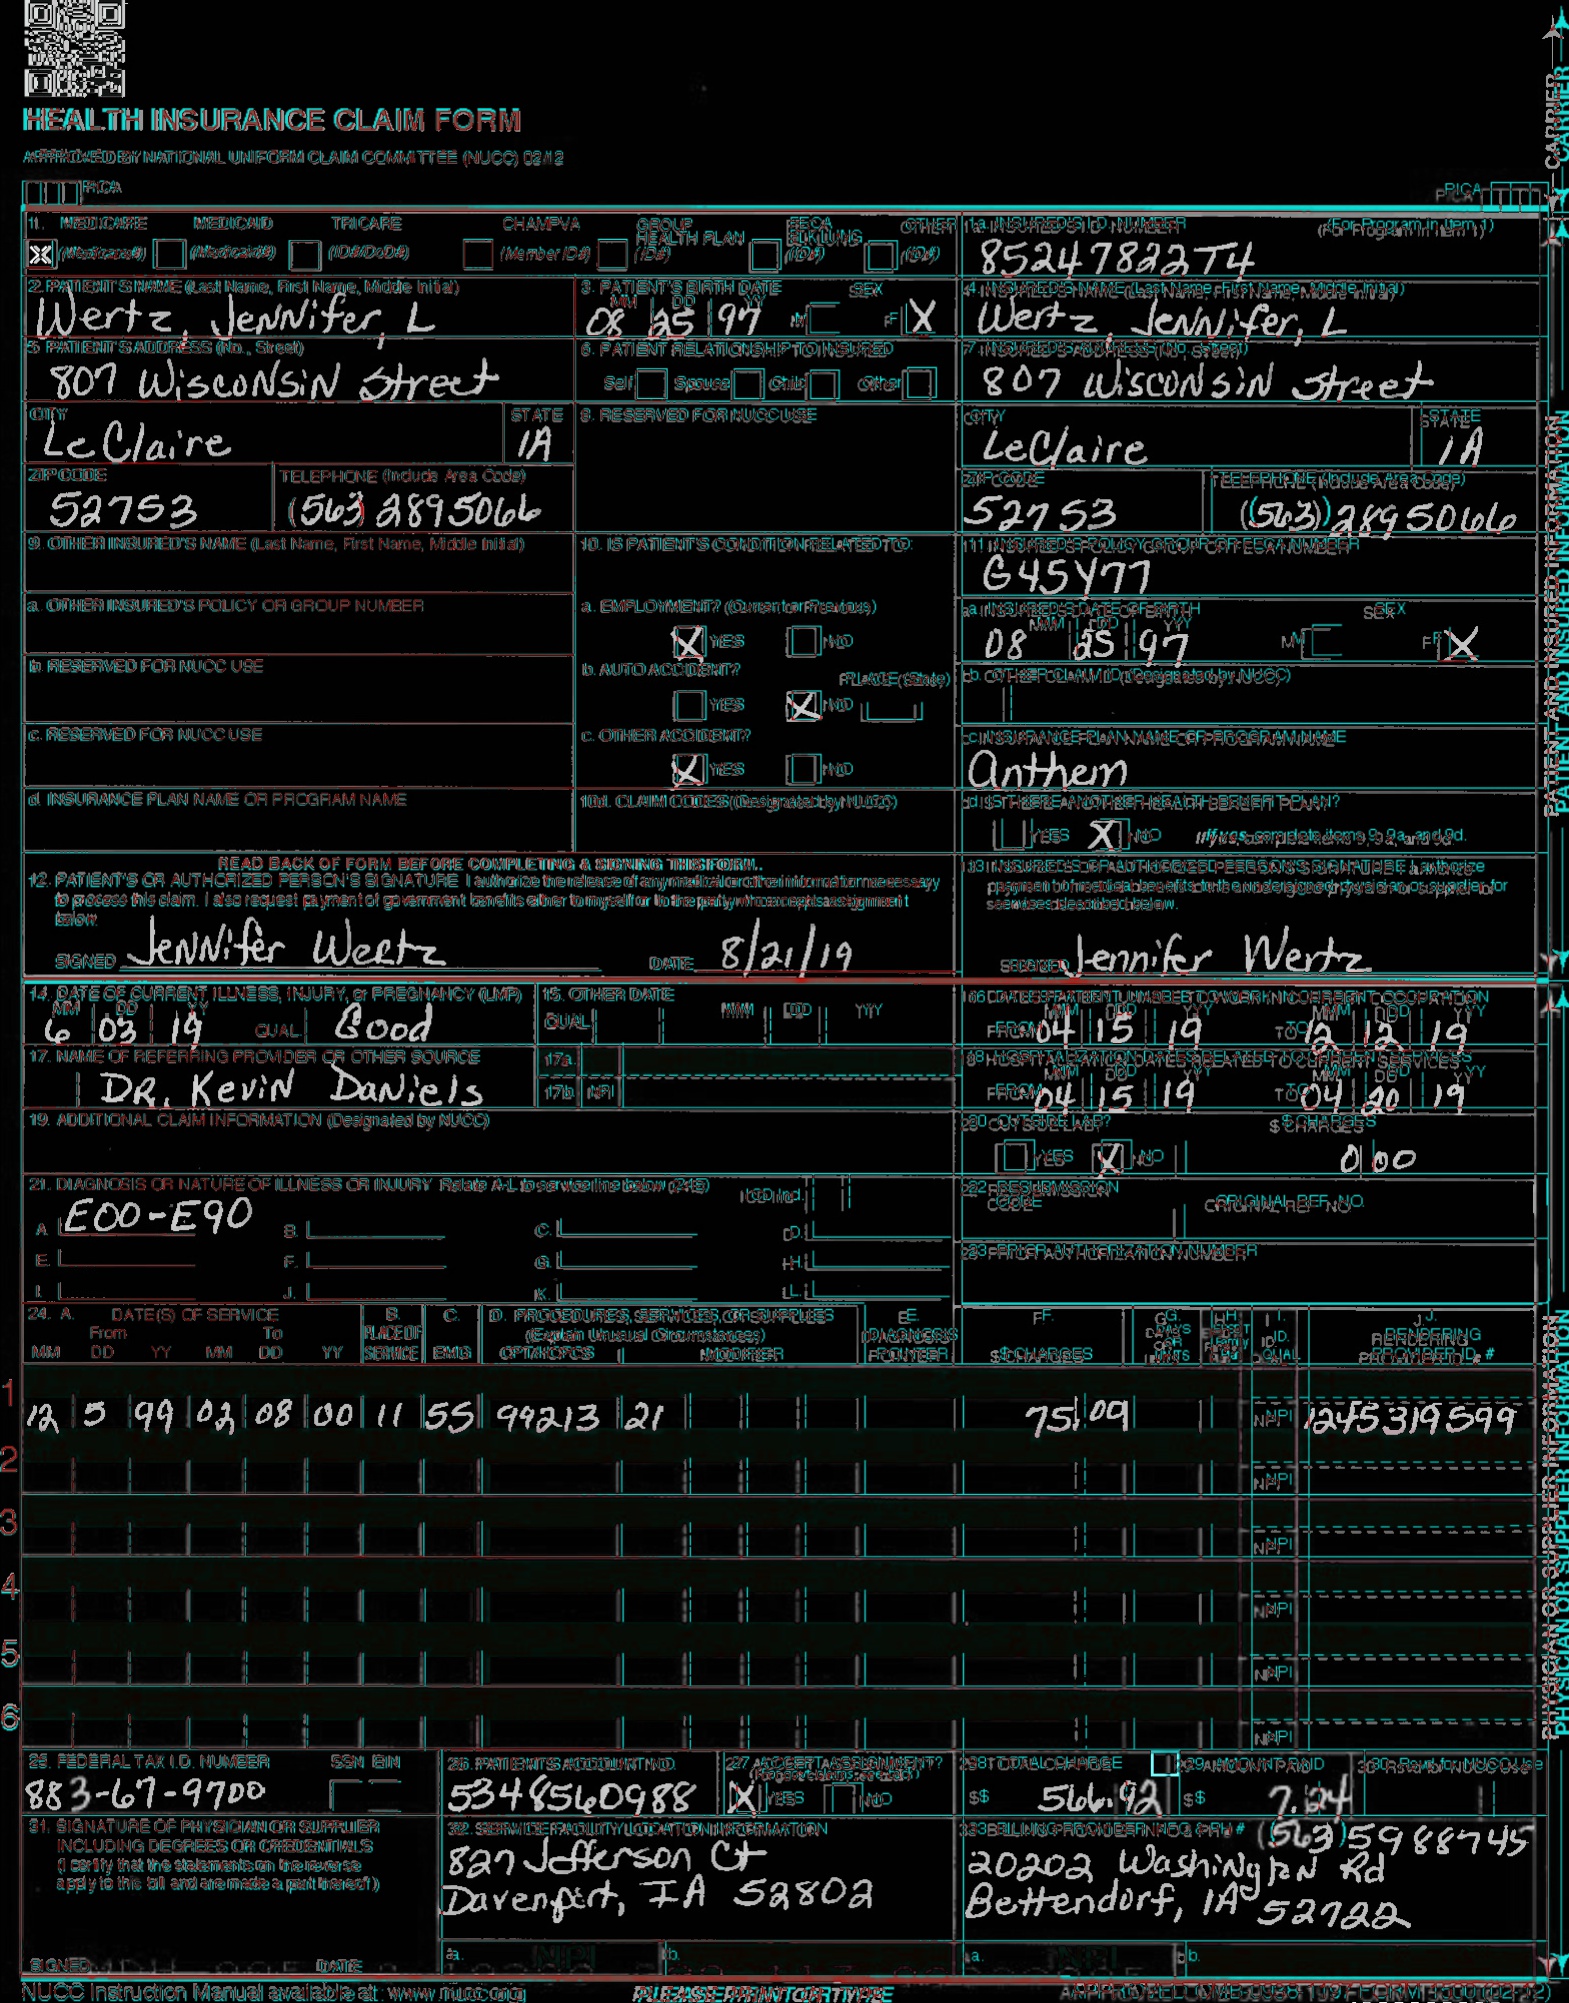 HEALTH INSURANCE CLAIM FORM
APPROVED BY NATIONAL UNIFORM CLAIM COMMITTEE (NUCC) 02/12
PICA
PICA
CARRIER
1. MEDICARE MEDICAID TRICARE CHAMPVA GROUP HEALTH PLAN FECA BLK LUNG OTHER
X (Medicare#) (Medicaid#) (ID#/DoD#) (Member ID#) (ID#) (ID#) (ID#)
1a. INSURED'S I.D. NUMBER (For Program in Item 1)
85247822T4
2. PATIENT'S NAME (Last Name, First Name, Middle Initial)
Wertz, Jennifer, L
3. PATIENT'S BIRTH DATE SEX
MM DD YY
08 25 97 M F X
4. INSURED'S NAME (Last Name, First Name, Middle Initial)
Wertz, Jennifer, L
5. PATIENT'S ADDRESS (No., Street)
807 Wisconsin Street
6. PATIENT RELATIONSHIP TO INSURED
Self Spouse Child Other
7. INSURED'S ADDRESS (No., Street)
807 Wisconsin Street
CITY STATE
LeClaire IA
8. RESERVED FOR NUCC USE
CITY STATE
LeClaire IA
ZIP CODE TELEPHONE (Include Area Code)
52753 (563) 2895066
ZIP CODE TELEPHONE (Include Area Code)
52753 (563) 2895066
9. OTHER INSURED'S NAME (Last Name, First Name, Middle Initial)
10. IS PATIENT'S CONDITION RELATED TO:
11. INSURED'S POLICY GROUP OR FECA NUMBER
G45Y77
a. OTHER INSURED'S POLICY OR GROUP NUMBER
a. EMPLOYMENT? (Current or Previous)
X YES NO
a. INSURED'S DATE OF BIRTH SEX
MM DD YY
08 25 97 M F X
b. RESERVED FOR NUCC USE
b. AUTO ACCIDENT? PLACE (State)
YES X NO
b. OTHER CLAIM ID (Designated by NUCC)
c. RESERVED FOR NUCC USE
c. OTHER ACCIDENT?
X YES NO
c. INSURANCE PLAN NAME OR PROGRAM NAME
Anthem
d. INSURANCE PLAN NAME OR PROGRAM NAME
10d. CLAIM CODES (Designated by NUCC)
d. IS THERE ANOTHER HEALTH BENEFIT PLAN?
YES X NO If yes, complete items 9, 9a, and 9d.
READ BACK OF FORM BEFORE COMPLETING & SIGNING THIS FORM.
12. PATIENT'S OR AUTHORIZED PERSON'S SIGNATURE I authorize the release of any medical or other information necessary
to process this claim. I also request payment of government benefits either to myself or to the party who accepts assignment
below.
SIGNED Jennifer Wertz DATE 8/21/19
13. INSURED'S OR AUTHORIZED PERSON'S SIGNATURE I authorize
payment of medical benefits to the undersigned physician or supplier for
services described below.
SIGNED Jennifer Wertz
PATIENT AND INSURED INFORMATION
14. DATE OF CURRENT ILLNESS, INJURY, or PREGNANCY (LMP)
MM DD YY
6 03 19 QUAL. Good
15. OTHER DATE
QUAL. MM DD YY
16. DATES PATIENT UNABLE TO WORK IN CURRENT OCCUPATION
MM DD YY MM DD YY
FROM 04 15 19 TO 12 12 19
17. NAME OF REFERRING PROVIDER OR OTHER SOURCE
DR. Kevin Daniels
17a.
17b. NPI
18. HOSPITALIZATION DATES RELATED TO CURRENT SERVICES
MM DD YY MM DD YY
FROM 04 15 19 TO 04 20 19
19. ADDITIONAL CLAIM INFORMATION (Designated by NUCC)
20. OUTSIDE LAB? $ CHARGES
YES X NO 0 00
21. DIAGNOSIS OR NATURE OF ILLNESS OR INJURY Relate A-L to service line below (24E) ICD Ind.
A. E00-E90 B. C. D.
E. F. G. H.
I. J. K. L.
22. RESUBMISSION CODE ORIGINAL REF. NO.
23. PRIOR AUTHORIZATION NUMBER
24. A. DATE(S) OF SERVICE B. C. D. PROCEDURES, SERVICES, OR SUPPLIES E. F. G. H. I. J.
From To PLACE OF (Explain Unusual Circumstances) DIAGNOSIS DAYS OR UNITS ID. RENDERING
MM DD YY MM DD YY SERVICE EMG CPT/HCPCS MODIFIER POINTER $ CHARGES QUAL. PROVIDER ID. #
1
12 5 99 02 08 00 11 55 99213 21 75 09 NPI 1245319599
2
NPI
3
NPI
4
NPI
5
NPI
6
NPI
PHYSICIAN OR SUPPLIER INFORMATION
25. FEDERAL TAX I.D. NUMBER SSN EIN
883-67-9700
26. PATIENT'S ACCOUNT NO.
5348560988
27. ACCEPT ASSIGNMENT?
(For govt. claims, see back)
X YES NO
28. TOTAL CHARGE
$ 566.92
29. AMOUNT PAID
$
30. Rsvd for NUCC Use
31. SIGNATURE OF PHYSICIAN OR SUPPLIER
INCLUDING DEGREES OR CREDENTIALS
(I certify that the statements on the reverse
apply to this bill and are made a part thereof.)
SIGNED DATE
32. SERVICE FACILITY LOCATION INFORMATION
827 Jefferson Ct
Davenport, IA 52802
a. b.
33. BILLING PROVIDER INFO & PH # (563) 5988745
20202 Washington Rd
Bettendorf, IA 52722
a. b.
NUCC Instruction Manual available at: www.nucc.org
PLEASE PRINT OR TYPE